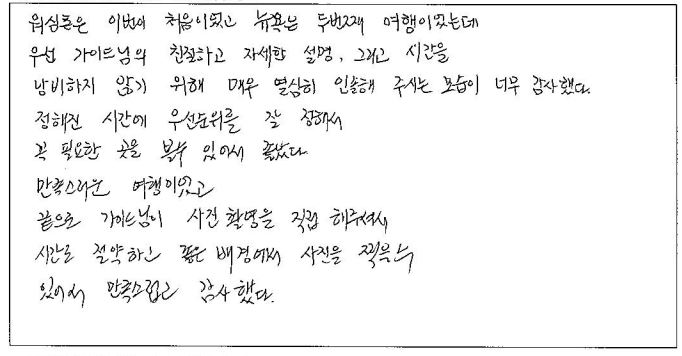 워싱톤은 이번이 처음이었고 뉴욕은 두번째 여행이었는데
우선 가이드님의 친절하고 자세한 설명, 그리고 시간을
낭비하지 않기 위해 매우 열심히 인솔해 주시는 모습이 너무 감사했다.
정해진 시간에 우선순위를 잘 정해서
꼭 필요한 곳을 볼수 있어서 좋았다.
만족스러운 여행이었고
끝으로 가이드님이 사진 촬영을 직접 해주셔서
시간도 절약하고 좋은 배경에서 사진을 찍을수
있어서 만족스럽고 감사했다.